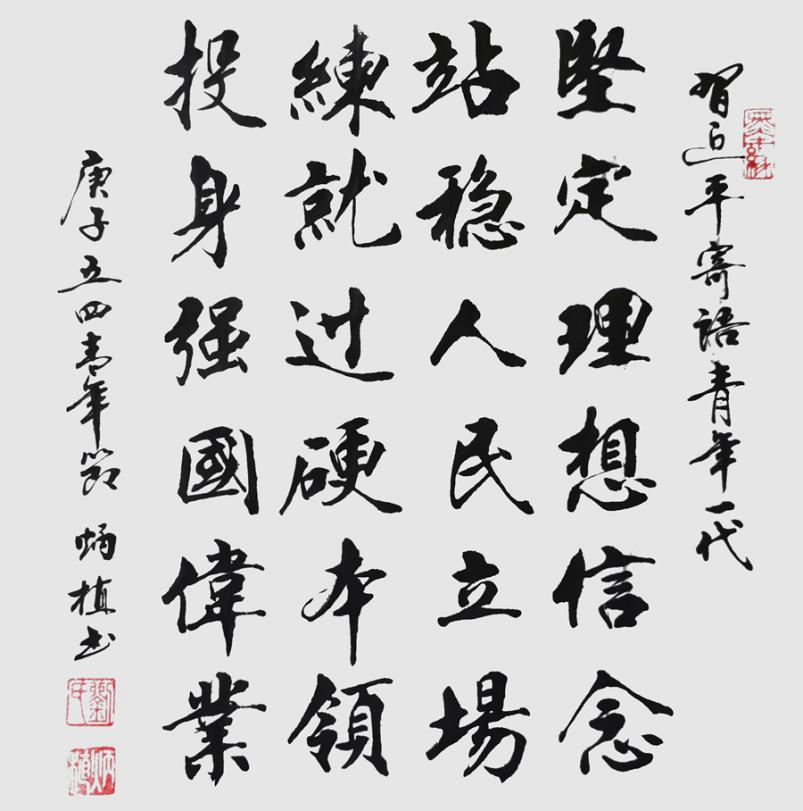 習近平寄語青年一代
堅定理想信念
站稳人民立場
練就过硬本領
投身强國偉業
庚子五四青年節 炳植书